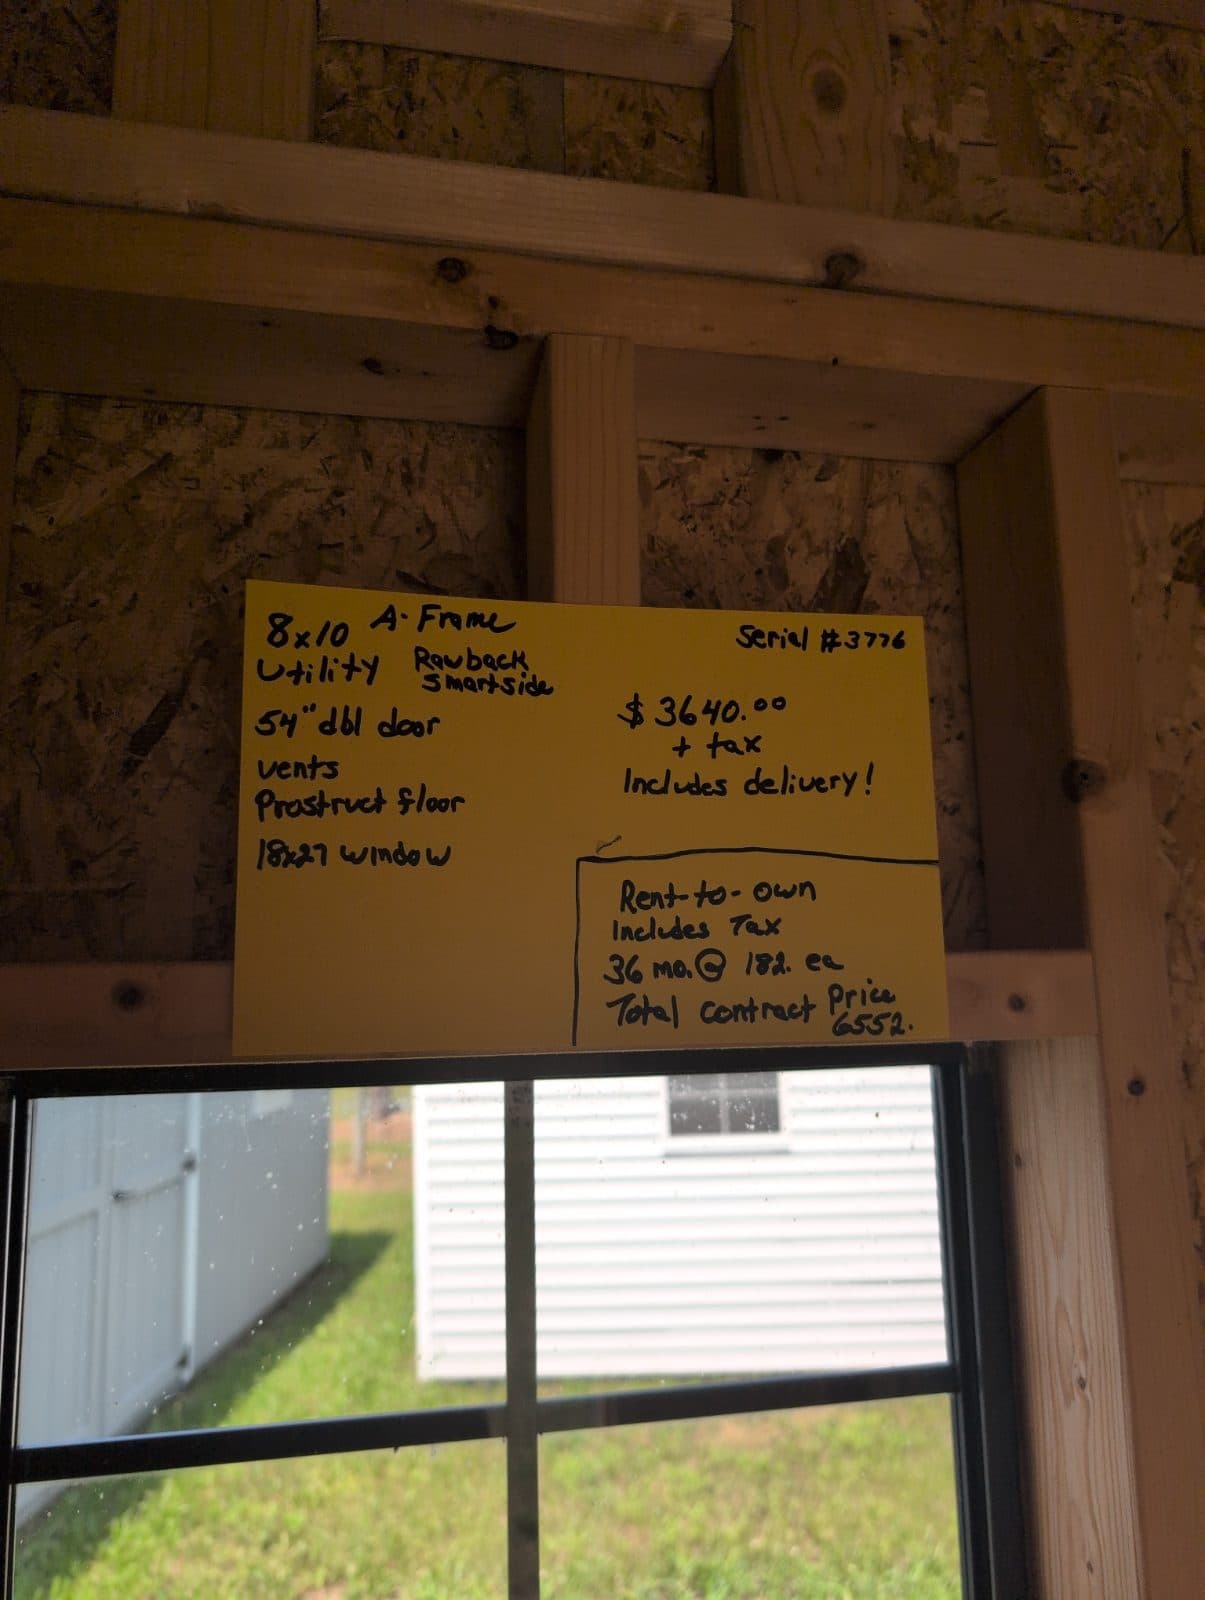 8x10 A-Frame
Utility Rawback
Smartside
54" dbl door
vents
Prostruct floor
18x27 window
Serial #3776
$3640.00
+ tax
Includes delivery!
Rent-to-own
Includes Tax
36 mo.@ 182. ea
Total contract Price
6552.